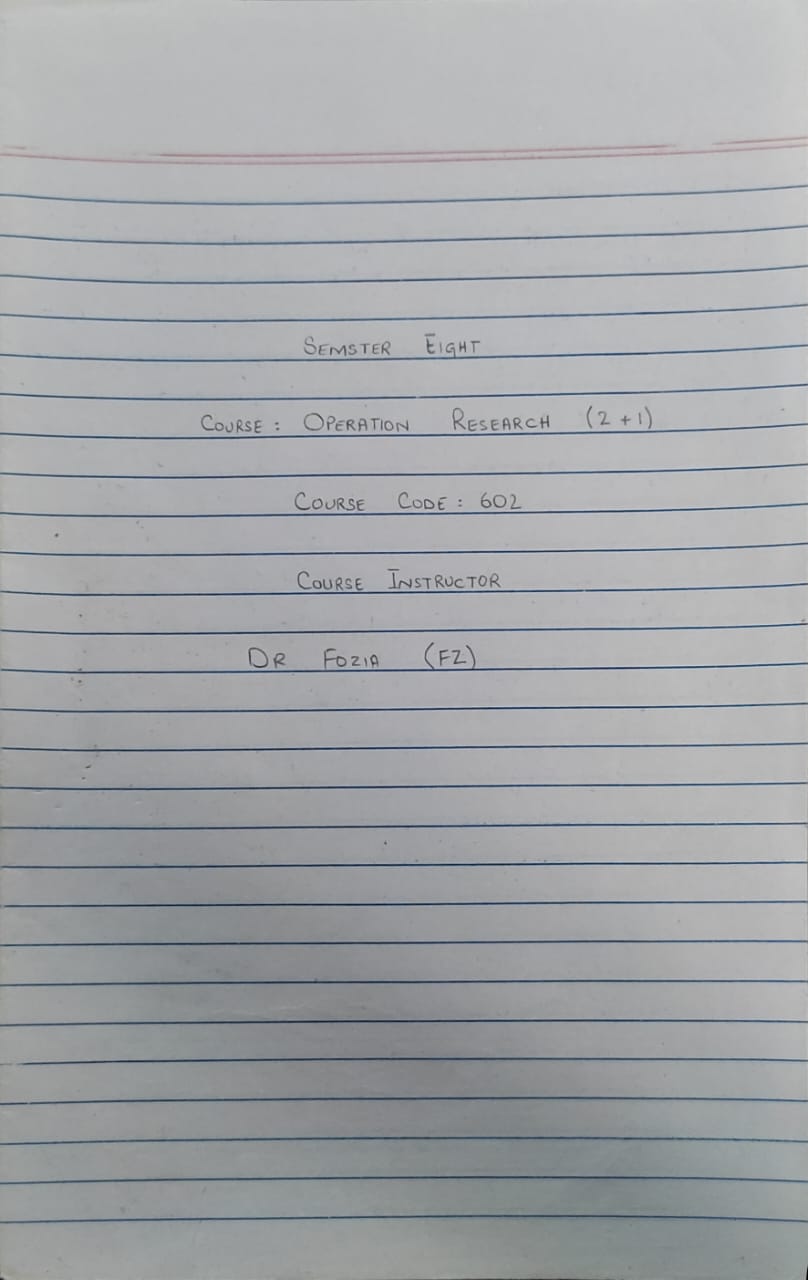 SEMSTER EIGHT
COURSE: OPERATION RESEARCH (2+1)
COURSE CODE: 602
COURSE INSTRUCTOR
DR FOZIA (FZ)